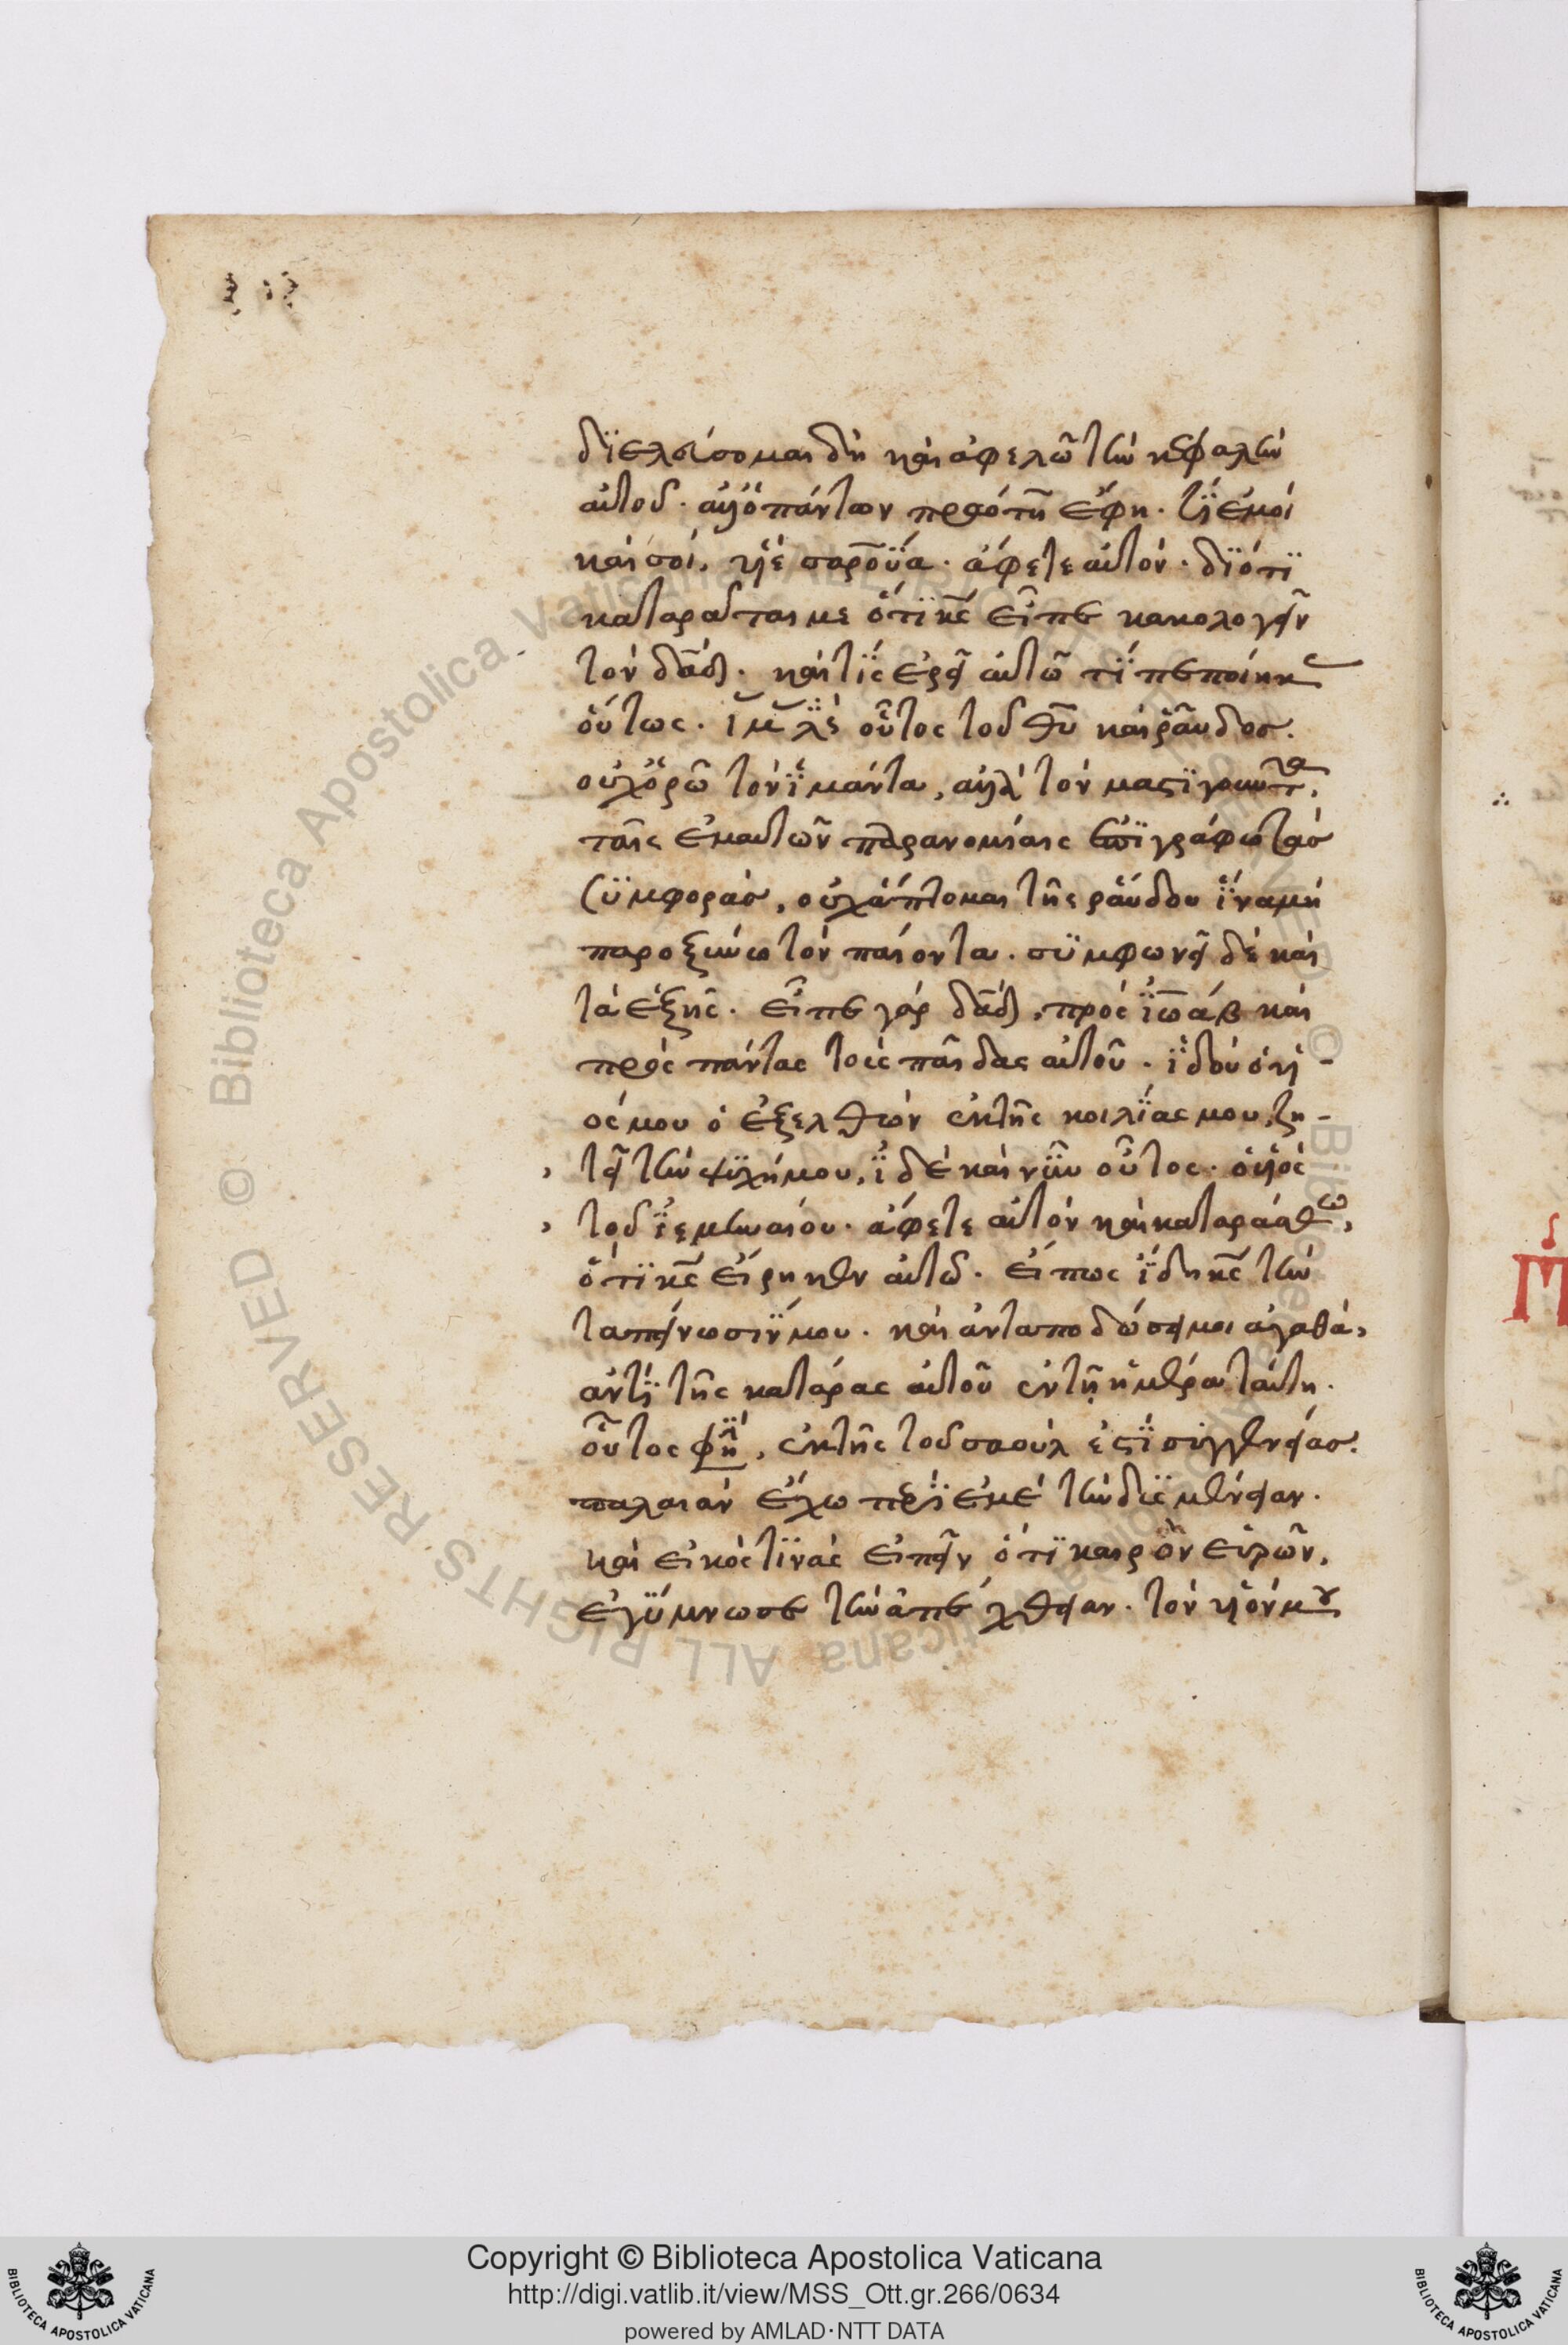 διελεύσομαι δὴ καὶ ἀφελῶ τὴν κεφαλὴν
αὐτοῦ. ἀλλ' ὁ πάντων πραότης ἔφη. τί ἐμοὶ
καὶ σοὶ, υἱὲ σαρουΐα. ἄφετε αὐτόν. διότι
καταρᾶται με ὅτι κς εἶπε κακολογεῖν
τὸν δᾶδ. καὶ τίς ἐρεῖ αὐτῶ τί πεποίηκας
οὕτως. οὗτος τοῦ θῦ καὶ ῥάβδος.
οὐχ ὁρῶ τὸν ἱμάντα, ἀλλὰ τὸν μαστιγοῦντα.
ταῖς ἐμαυτῶν παρανομίαις ἐπιγράφω τὰς
συμφορὰς, οὐχ ἅπτομαι τῆς ῥάβδου ἵνα μὴ
παροξύνω τὸν παίοντα. συμφωνεῖ δὲ καὶ
τὰ ἑξῆς. εἶπε γὰρ δᾶδ, πρὸς ἰωὰβ καὶ
πρὸς πάντας τοὺς παῖδας αὐτοῦ. ἰδοὺ ὁ υἱ-
ός μου ὁ ἐξελθὼν ἐκ τῆς κοιλίας μου, ζη-
τεῖ τὴν ψυχήν μου, ἰδὲ καὶ νῦν οὗτος. ὁ υἱὸς
τοῦ ἰεμιναίου. ἄφετε αὐτὸν καὶ καταράσθω,
ὅτι κς εἴρηκεν αὐτῶ. εἴπως ἴδη κς τὴν
ταπείνωσίν μου. καὶ ἀνταποδώσει μοι ἀγαθὰ,
ἀντὶ τῆς κατάρας αὐτοῦ ἐν τῇ ἡμέρα ταύτη.
οὗτος φησὶ, ἐκ τῆς τοῦ σαοὺλ ἐστὶ συγγενείας.
παλαιὰν ἔχω περὶ ἐμὲ τὴν δυσμένειαν.
καὶ εἰκὸς τινὰς εἰπεῖν ὅτι καιρὸν εὑρὼν,
ἐγύμνωσε τὴν ἀπέχθειαν. τὸν υἱόν μου
Copyright © Biblioteca Apostolica Vaticana
http://digi.vatlib.it/view/MSS_Ott.gr.266/0634
powered by AMLAD·NTT DATA